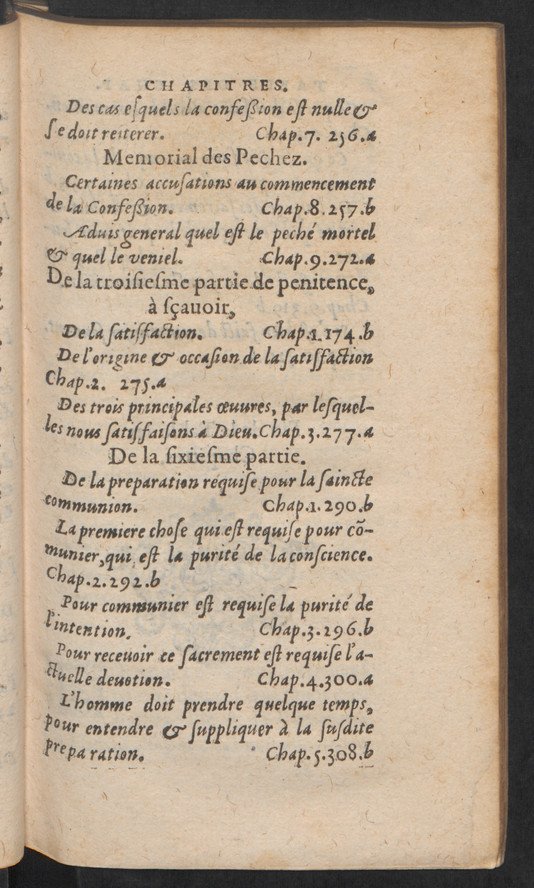 CHAPITRES.
Des cas esquels la confeßion est nulle &
se doit reiterer. Chap.7. 256.a
Memorial des Pechez.
Certaines accusations au commencement
de la Confeßion. Chap.8.257.b
Aduis general quel est le peché mortel
& quel le veniel. Chap.9.272.a
De la troisiesme partie de penitence,
à sçauoir,
De la satisfaction. Chap.1.174.b
De l'origine & occasion de la satisfaction
Chap.2. 275.a
Des trois principales œuures, par lesquel-
les nous satisfaisons à Dieu. Chap.3.277.a
De la sixiesme partie.
De la preparation requise pour la saincte
communion. Chap.1.290.b
La premiere chose qui est requise pour cõ-
munier, qui est la purité de la conscience.
Chap.2.292.b
Pour communier est requise la purité de
l'intention. Chap.3.296.b
Pour receuoir ce sacrement est requise l'a-
ctuelle deuotion. Chap.4.300.a
L'homme doit prendre quelque temps,
pour entendre & suppliquer à la susdite
preparation. Chap.5.308.b